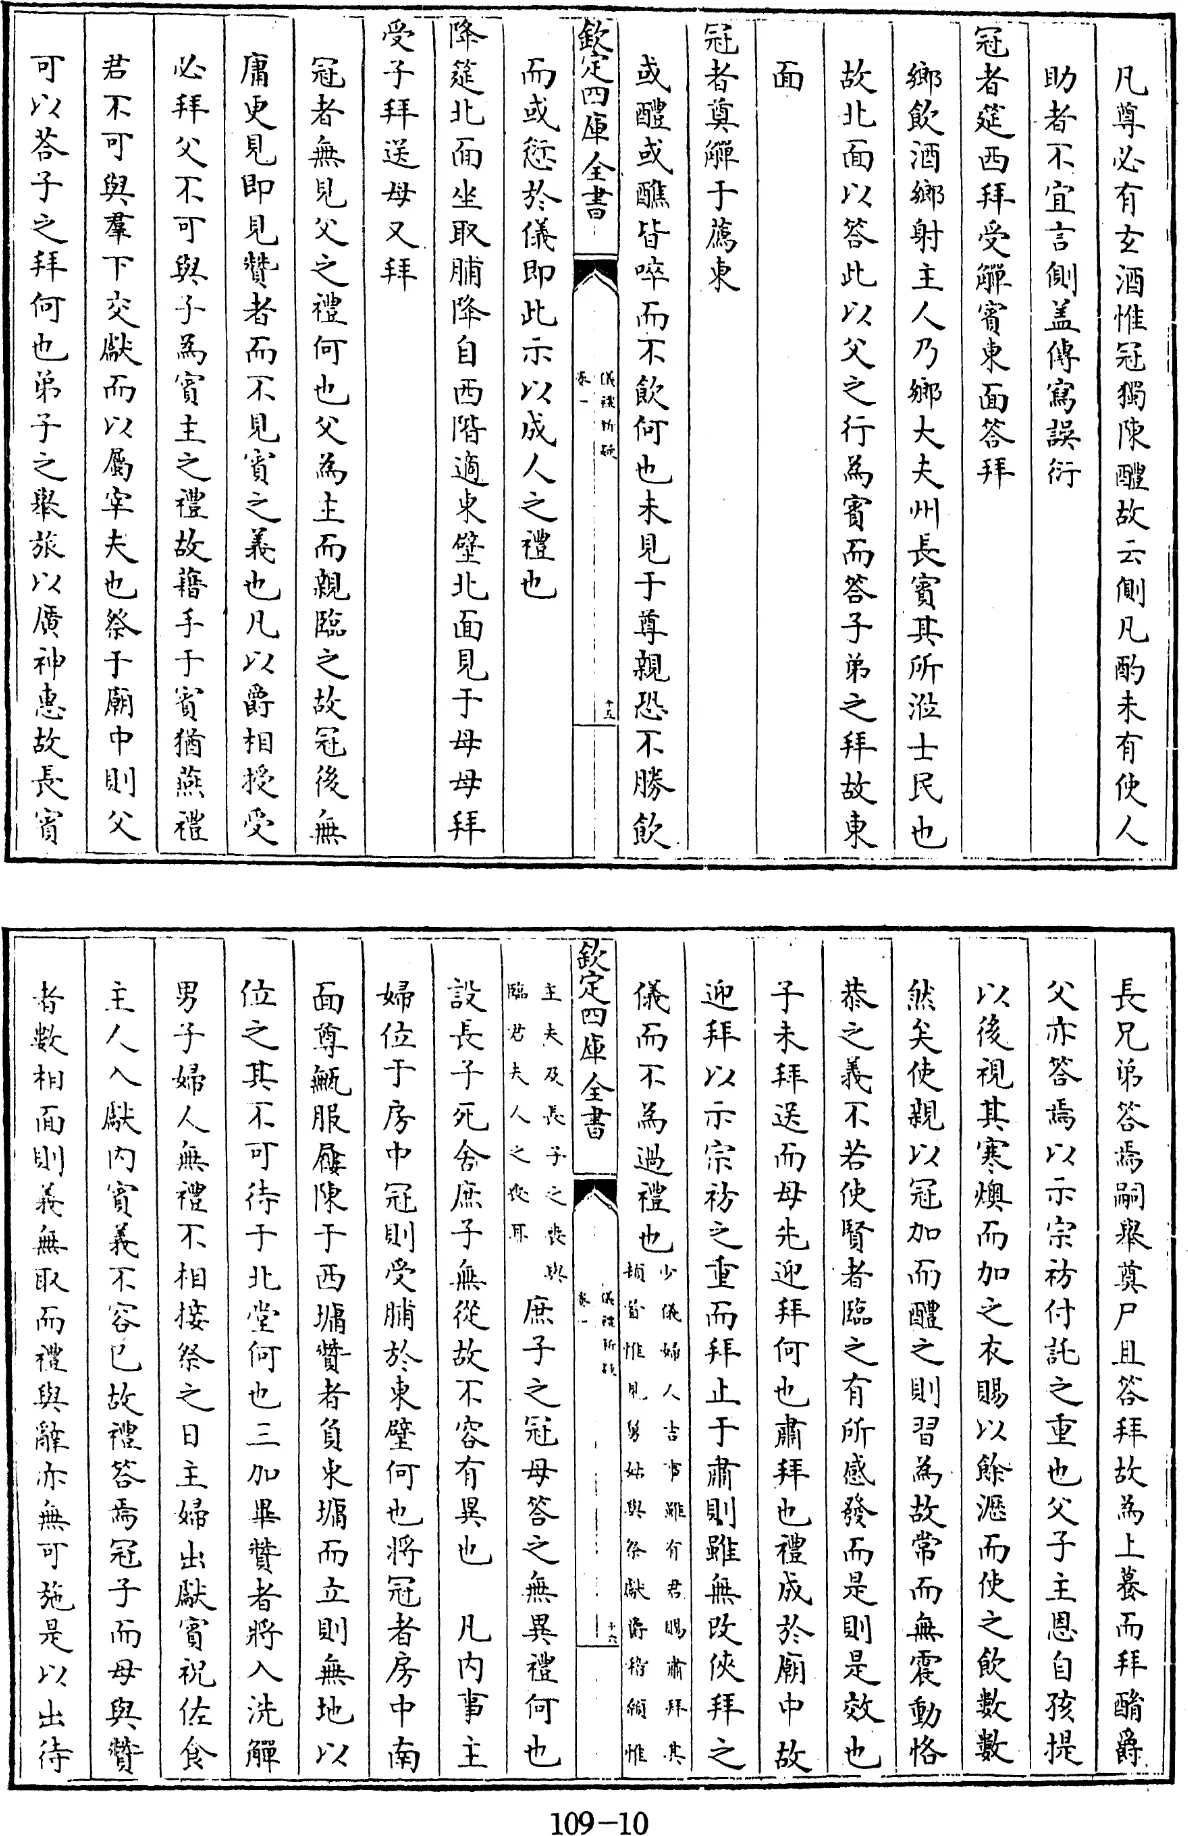 凡尊必有玄酒惟冠獨陳醴故云側凡酌未有使人
助者不宜言側盖傳寫誤衍
冠者筵西拜受觶賓東面答拜
鄉飲酒鄉射主人乃鄉大夫州長賓其所涖士民也
故北面以答此以父之行為賓而答子弟之拜故東
面
冠者奠觶于薦東
或醴或醮皆啐而不飲何也未見于尊親恐不勝飲
欽定四庫全書
儀禮析疑
卷一
十五
而或愆於儀即此示以成人之禮也
降筵北面坐取脯降自西階適東壁北面見于母母拜
受子拜送母又拜
冠者無見父之禮何也父為主而親臨之故冠後無
庸更見即見贊者而不見賓之義也凡以爵相授受
必拜父不可與子為賓主之禮故藉手于賓猶燕禮
君不可與羣下交獻而以屬宰夫也祭于廟中則父
可以荅子之拜何也弟子之舉旅以廣神惠故長賓
長兄弟答焉嗣舉奠尸且答拜故為上養而拜酳爵
父亦答焉以示宗祊付託之重也父子主恩自孩提
以後視其寒燠而加之衣賜以餘瀝而使之飲數數
然矣使親以冠加而醴之則習為故常而無震動恪
恭之義不若使賢者臨之有所感發而是則是效也
子未拜送而母先迎拜何也肅拜也禮成於廟中故
迎拜以示宗祊之重而拜止于肅則雖無改俠拜之
儀而不為過禮也少儀婦人吉事雖有君賜肅拜其
頫首惟見舅姑與祭獻爵稽顙惟
欽定四庫全書
儀禮析疑
卷一
十六
主夫及長子之喪與
臨君夫人之喪耳庶子之冠母答之無異禮何也
設長子死舍庶子無從故不容有異也　凡內事主
婦位于房中冠則受脯於東壁何也將冠者房中南
面尊甒服屨陳于西墉贊者負東墉而立則無地以
位之其不可待于北堂何也三加畢贊者將入洗觶
男子婦人無禮不相接祭之日主婦出獻賓祝佐食
主人入獻內賓義不容已故禮答焉冠子而母與贊
者數相面則義無取而禮與辭亦無可施是以出待
109-10